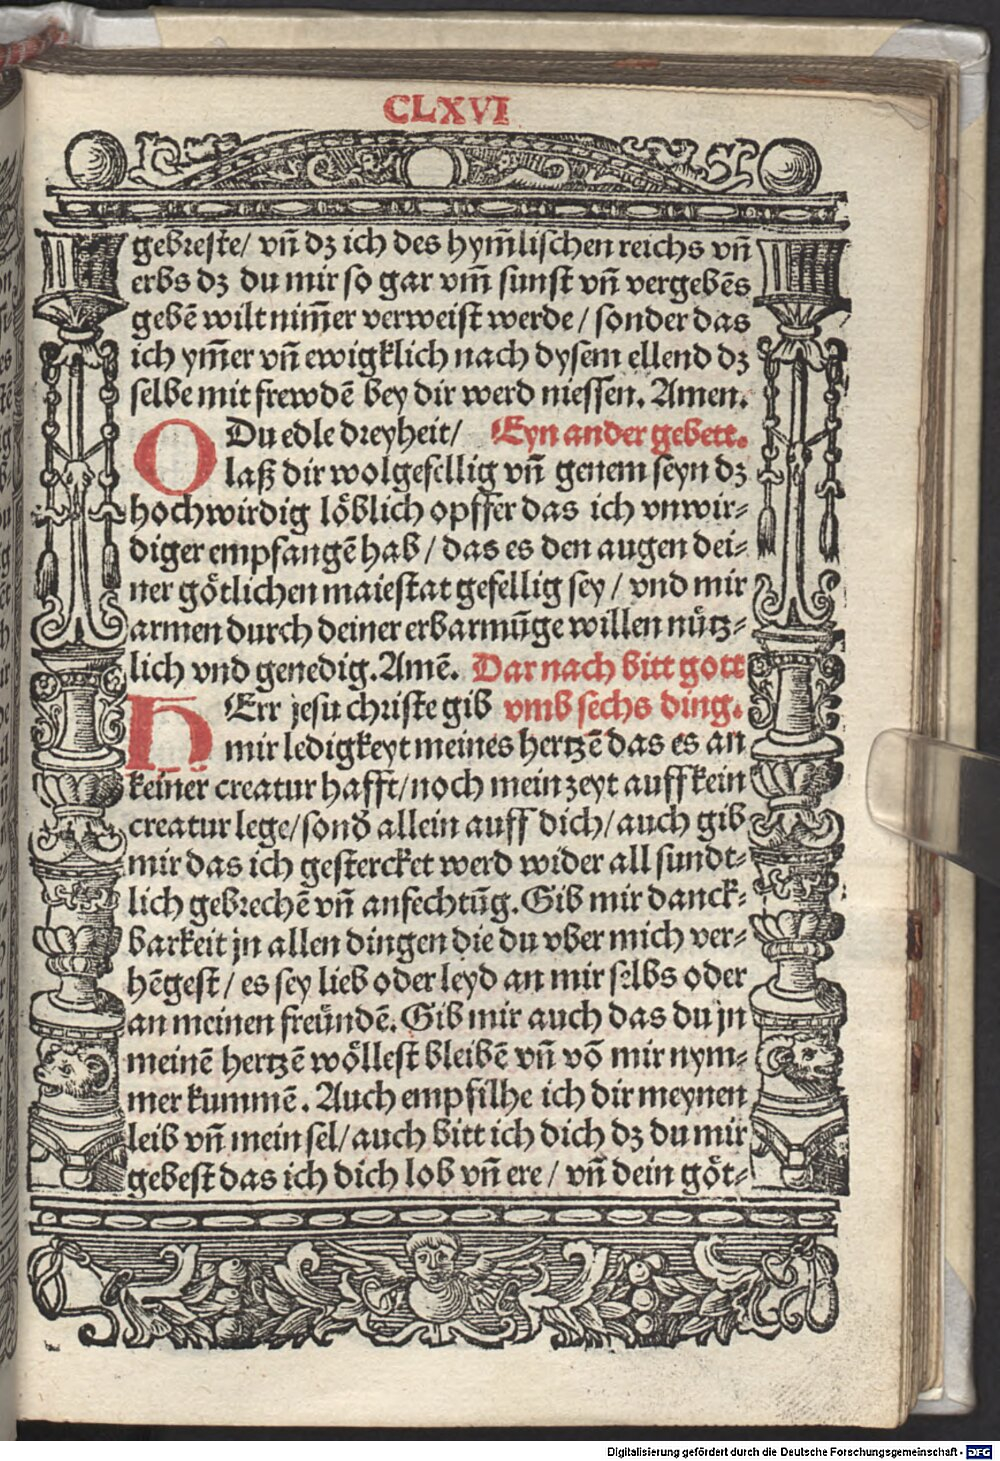 CLXVI
gebreſte/ vn̄ dꝫ ich des hym̄liſchen reichs vn̄
erbs dꝫ du mir ſo gar vm̄ ſunſt vn̄ vergebēs
gebē wilt nim̄er verweiſt werde / ſonder das
ich ym̄er vn̄ ewigklich nach dyſem ellend dꝫ
ſelbe mit frewdē bey dir werd nieſſen. Amen.
O Du edle dreyheit/ Eyn ander gebett.
laß dir wolgefellig vn̄ genem ſeyn dꝫ
hochwirdig loͤblich opffer das ich vnwir⸗
diger empfangē hab / das es den augen dei⸗
ner goͤtlichen maieſtat gefellig ſey / vnd mir
armen durch deiner erbarmūge willen nuͤtz⸗
lich vnd genedig. Amē. Dar nach bitt gott
HErr jeſu chriſte gib vmb ſechs ding.
mir ledigkeyt meines hertzē das es an
keiner creatur hafft/ noch mein zeyt auff kein
creatur lege/ ſonđ allein auff dich/ auch gib
mir das ich geſtercket werd wider all ſundt⸗
lich gebrechē vn̄ anfechtūg. Gib mir danck⸗
barkeit jn allen dingen die du vber mich ver⸗
hēgeſt / es ſey lieb oder leyd an mir ſelbs oder
an meinen freuͤndē. Gib mir auch das du jn
meinē hertzē woͤlleſt bleibē vn̄ vō mir nym⸗
mer kummē. Auch empfilhe ich dir meynen
leib vn̄ mein ſel/ auch bitt ich dich dꝫ du mir
gebeſt das ich dich lob vn̄ ere / vn̄ dein goͤt⸗
Digitalisierung gefördert durch die Deutsche Forschungsgemeinschaft - DFG